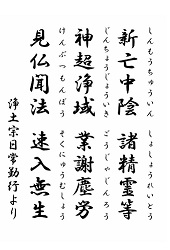 新亡中陰 諸精霊等
しんもうちゅういん しょしょうれいとう
神超浄域 業謝塵労
じんちょうじょういき ごうじゃじんろう
見仏聞法 速入無生
けんぶつもんぽう そくにゅうむしょう
浄土宗日常勤行より